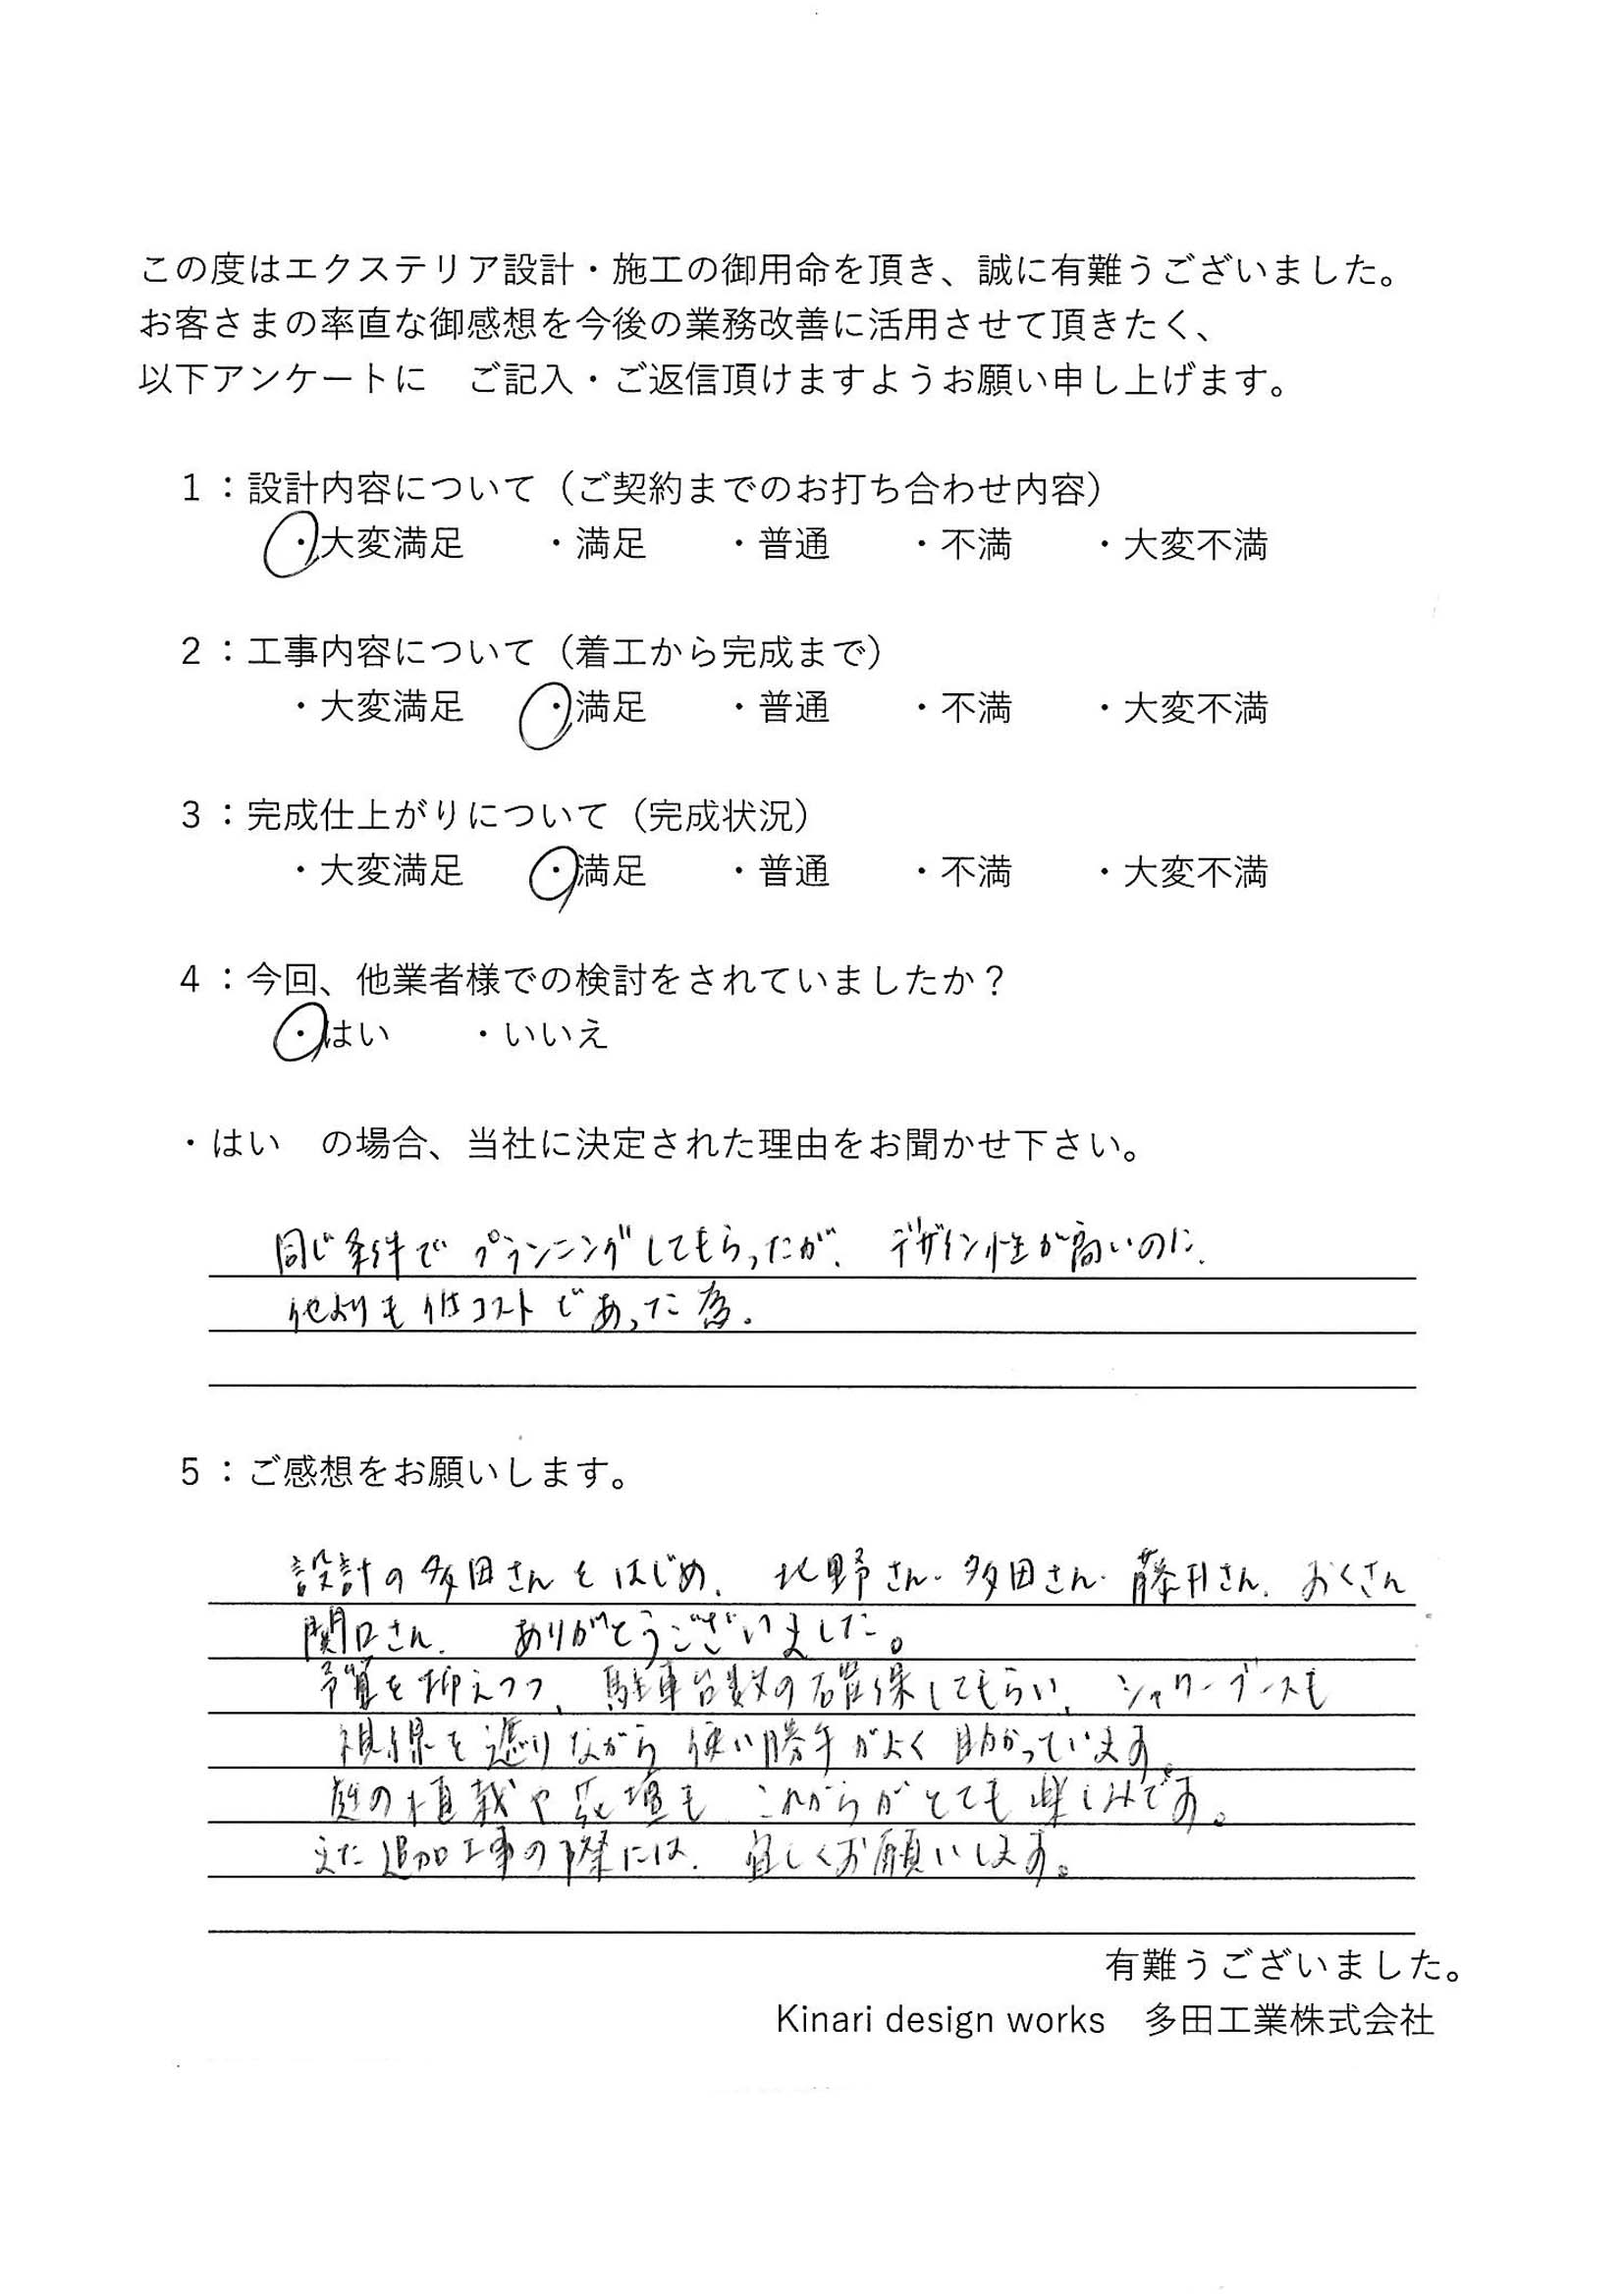 この度はエクステリア設計・施工の御用命を頂き、誠に有難うございました。
お客さまの率直な御感想を今後の業務改善に活用させて頂きたく、
以下アンケートに　ご記入・ご返信頂けますようお願い申し上げます。
１：設計内容について（ご契約までのお打ち合わせ内容）
・大変満足　・満足　・普通　・不満　・大変不満
２：工事内容について（着工から完成まで）
・大変満足　・満足　・普通　・不満　・大変不満
３：完成仕上がりについて（完成状況）
・大変満足　・満足　・普通　・不満　・大変不満
４：今回、他業者様での検討をされていましたか？
・はい　・いいえ
・はい　の場合、当社に決定された理由をお聞かせ下さい。
同じ条件でプランニングしてもらったが、デザイン性が高いのに、
他よりも低コストであった為。
５：ご感想をお願いします。
設計の多田さんをはじめ、北野さん・多田さん・さん、おくさん
関口さん、ありがとうございました。
予算を抑えつつ、駐車台数の確保してもらい、シャワーブースも
視線を遮りながら使い勝手がよく助かっています。
庭の植栽や花壇も これからがとても楽しみです。
また追加工事の際には、宜しくお願いします。
有難うございました。
Kinari design works　多田工業株式会社